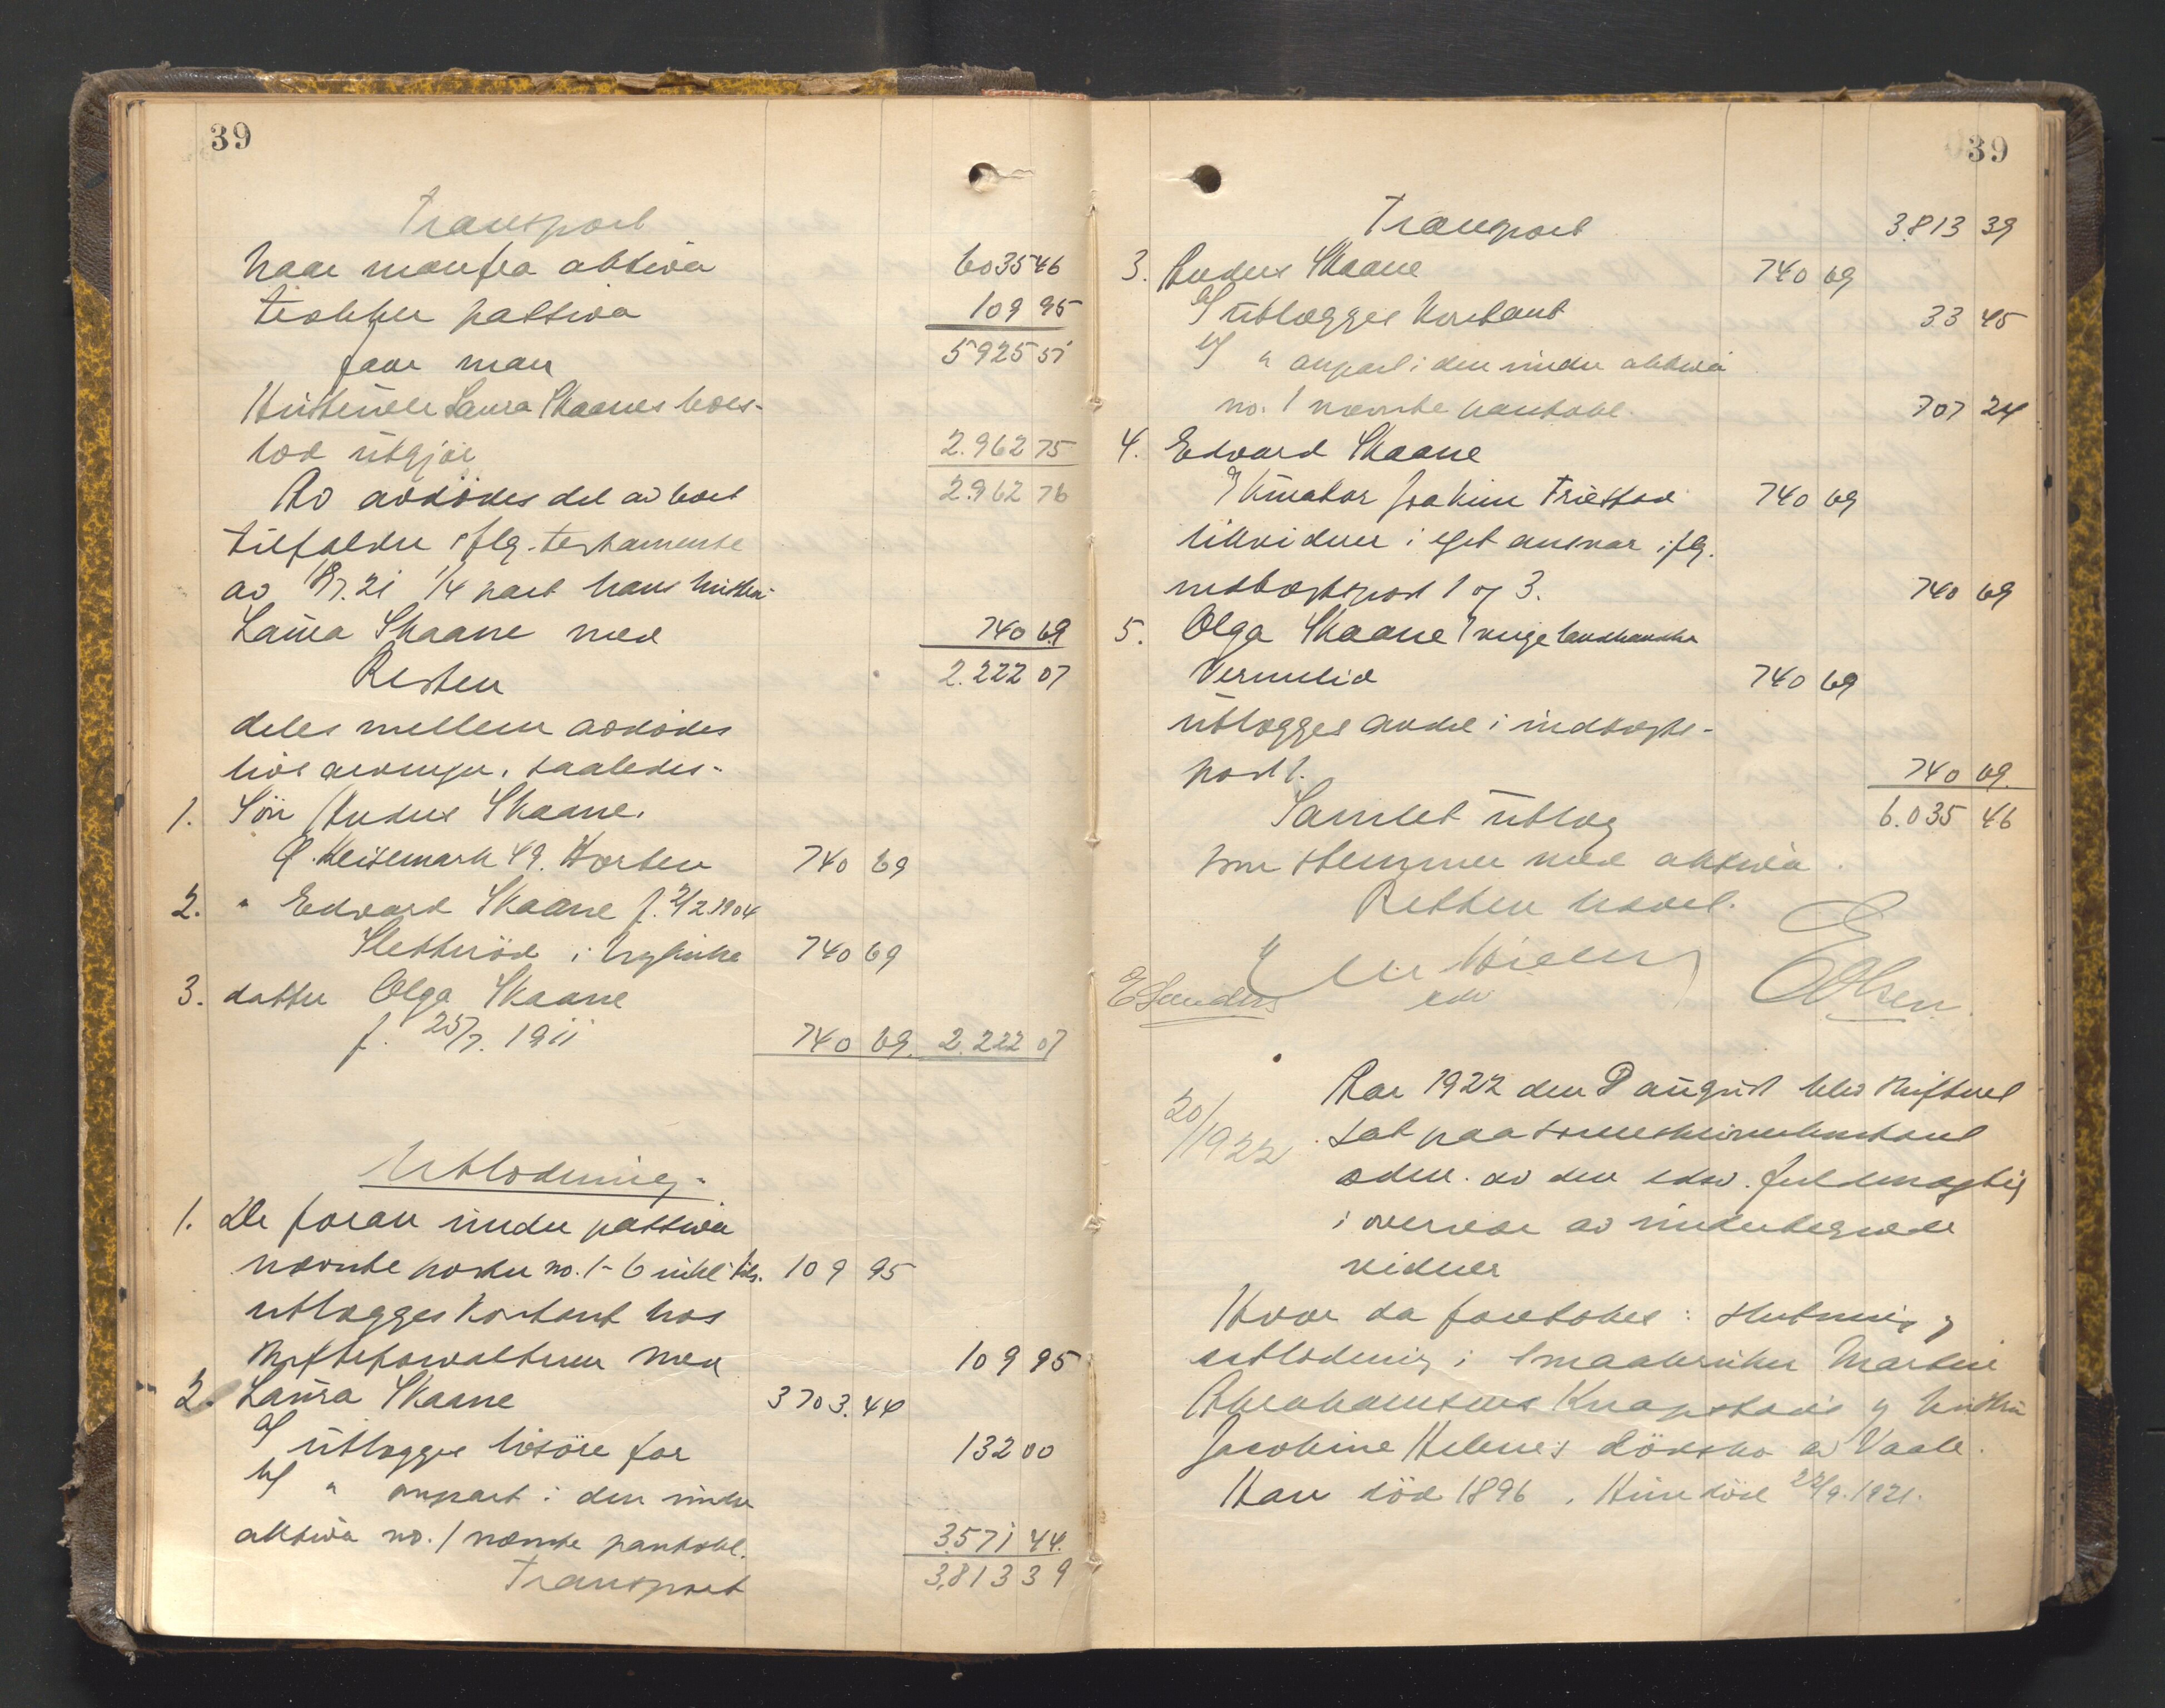 39
Transport
Naar man fra aktiva 6035 46
trækker passiva 109 95
faar man 5925 51
Hustruen Laura Skaanes boes-
lod utgjør 2.962 75
2.962 76
Av avdødes del av boet
tilfalder iflg. testamente
av 18/7.21 1/4 part hans hustru
Laura Skaane med 740 69
Resten 2.222 07
deles mellem avdødes
livsarvinger, saaledes-
1. Søn Anders Skaane.
49. Horten 740 69
2. " Edvard Skaane f. 2/2 1904
i 740 69
3. datter Olga Skaane
f. 25/7. 1911 740 69. 2.222 07
Utlodning.
1. De foran under passiva
nævnte poster no. 1-6 inkl. 109 95
utlægges kontant hos
skifteforvalteren med 109 95
2. Laura Skaane 3703.44
a/ utlægges løsøre for 132 00
b/ " anpart i den under
aktiva no. 1 nævnte pantobl. 3.571 44.
Transport 3.813 39
39
Transport 3.813 39
3. Anders Skaane 740 69
a/ utlægges kontant 33 45
b/ " anpart i den under aktiva
no. 1 nævnte pantobl. 707 24
4. Edvard Skaane
Kurator Joakim 740 69
likviderer i eget ansvar iflg.
indtægtspost 1 og 3. 740 69
5. Olga Skaane
740 69
utlægges andel i indtægts-
post 1. 740 69.
Samlet utlæg 6.035 46
som stemmer med aktiva.
Retten hævet.
edv
E Olsen.
20/1922
Aar 1922 den 8 august blev skifteret
sat paa sorenskriverkontoret
av den edsv. fuldmægtig
i overvær av undertegnede
vidner
Hvor da foretokes: slutning og
utlodning i smaabruker Martin
Abrahamsens Knapstads og hustru
Jacobine Helenes dødsbo av Vaale.
Han død 1896. Hun død 22/9.1921.